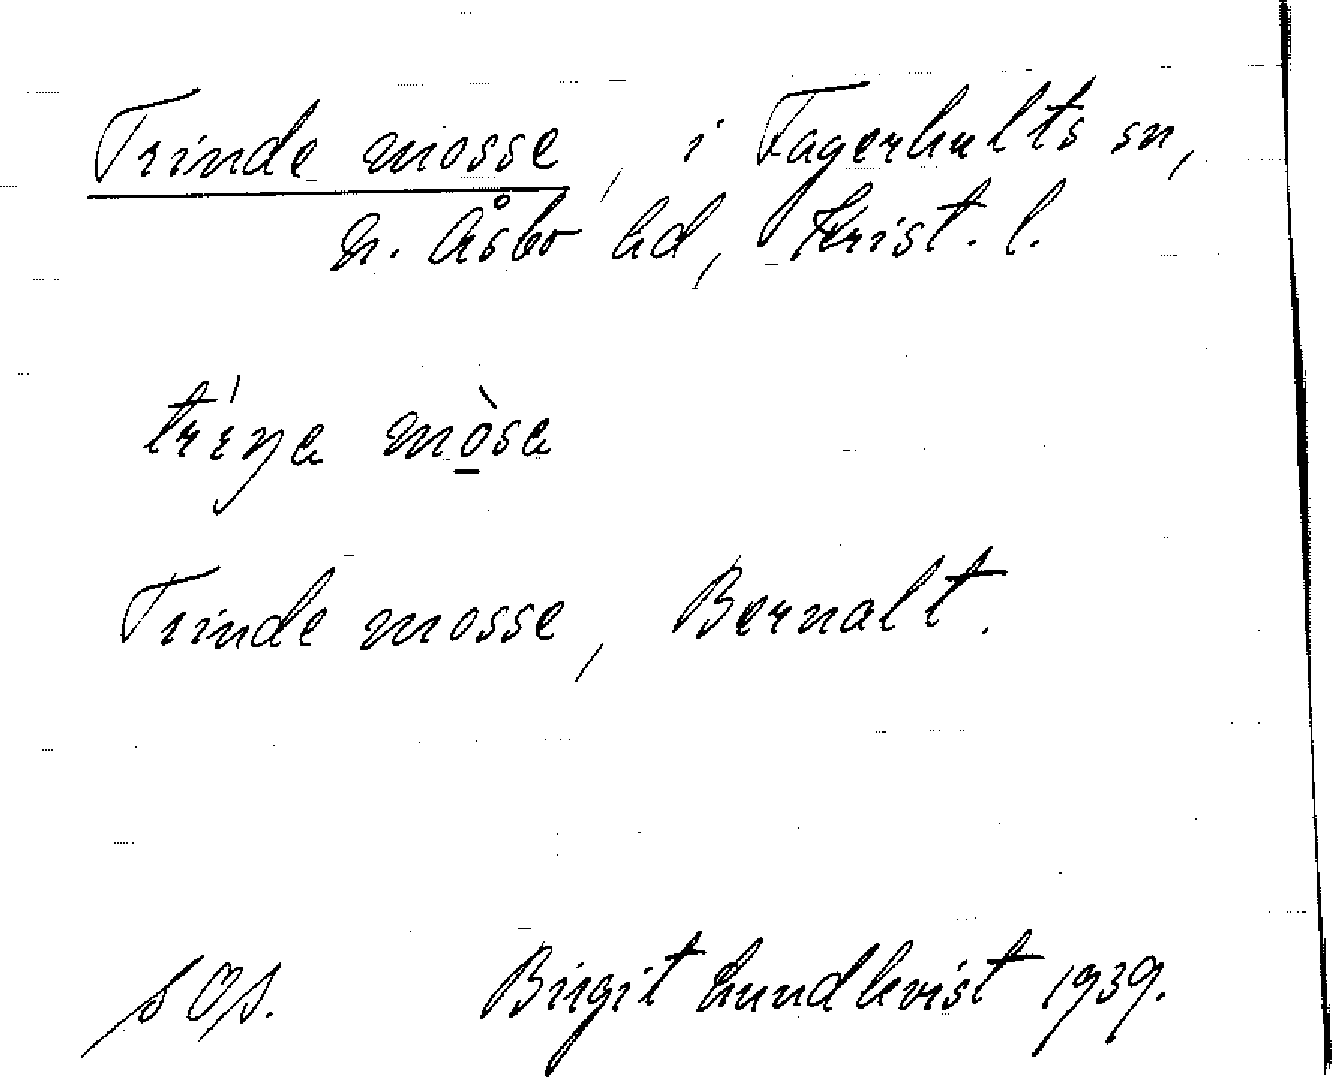 Trinde mosse, i Fagerhults sn,
N. Åsbo hd, Krist. l.
Trinde mosse, Bernalt.
SOS. Birgit Lundkvist 1939.